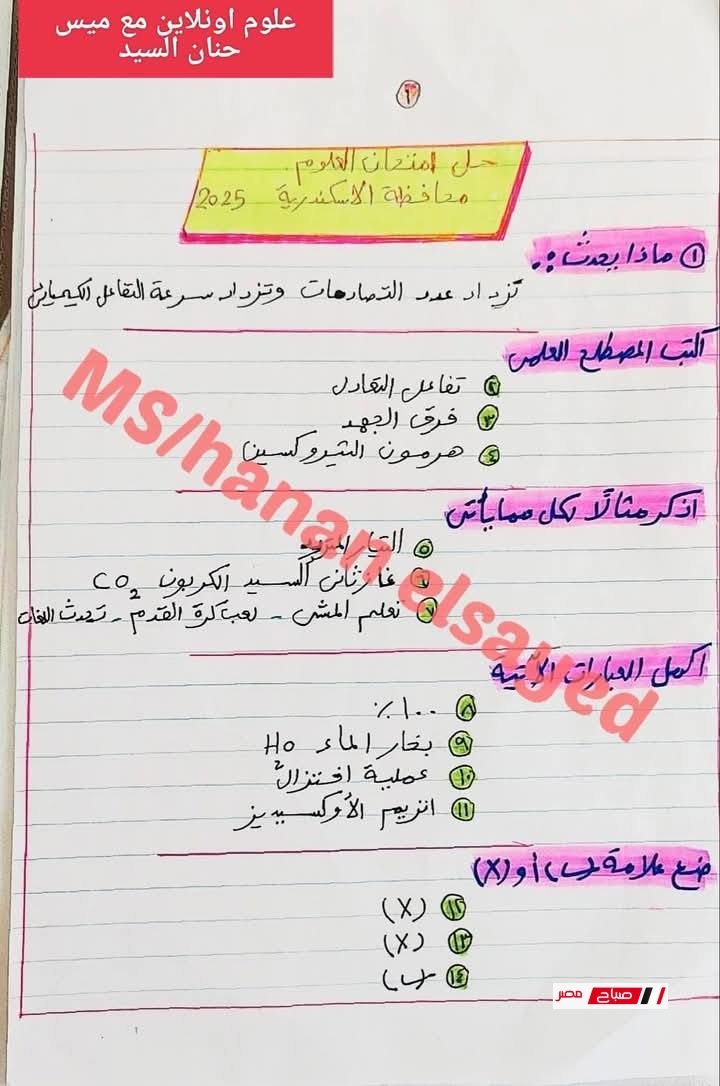 علوم اونلاين مع ميس
حنان السيد
٦
حل امتحان العلوم
محافظة الاسكندرية 2025
① ماذا يحدث :.
تزداد عدد التصادمات وتزداد سرعة التفاعل الكيميائى
اكتب المصطلح العلمى
② تفاعل التعادل
③ فرق الجهد
④ هرمون الثيروكسين
اذكر مثالًا لكل مما يأتى
⑤ التيار المتردد
⑥ غاز ثانى أكسيد الكربون CO₂
⑦ تعلم المشى - لعب كرة القدم - تحدث اللغات
اكمل العبارات الآتية
⑧ ١٠٠٪
⑨ بخار الماء H₂O
⑩ عملية اختزال
⑪ انزيم الأوكسيديز
ضع علامة (✓) أو (X)
⑫ (X)
⑬ (X)
⑭ (✓)
MS/hanan elsayed
صباح مصر